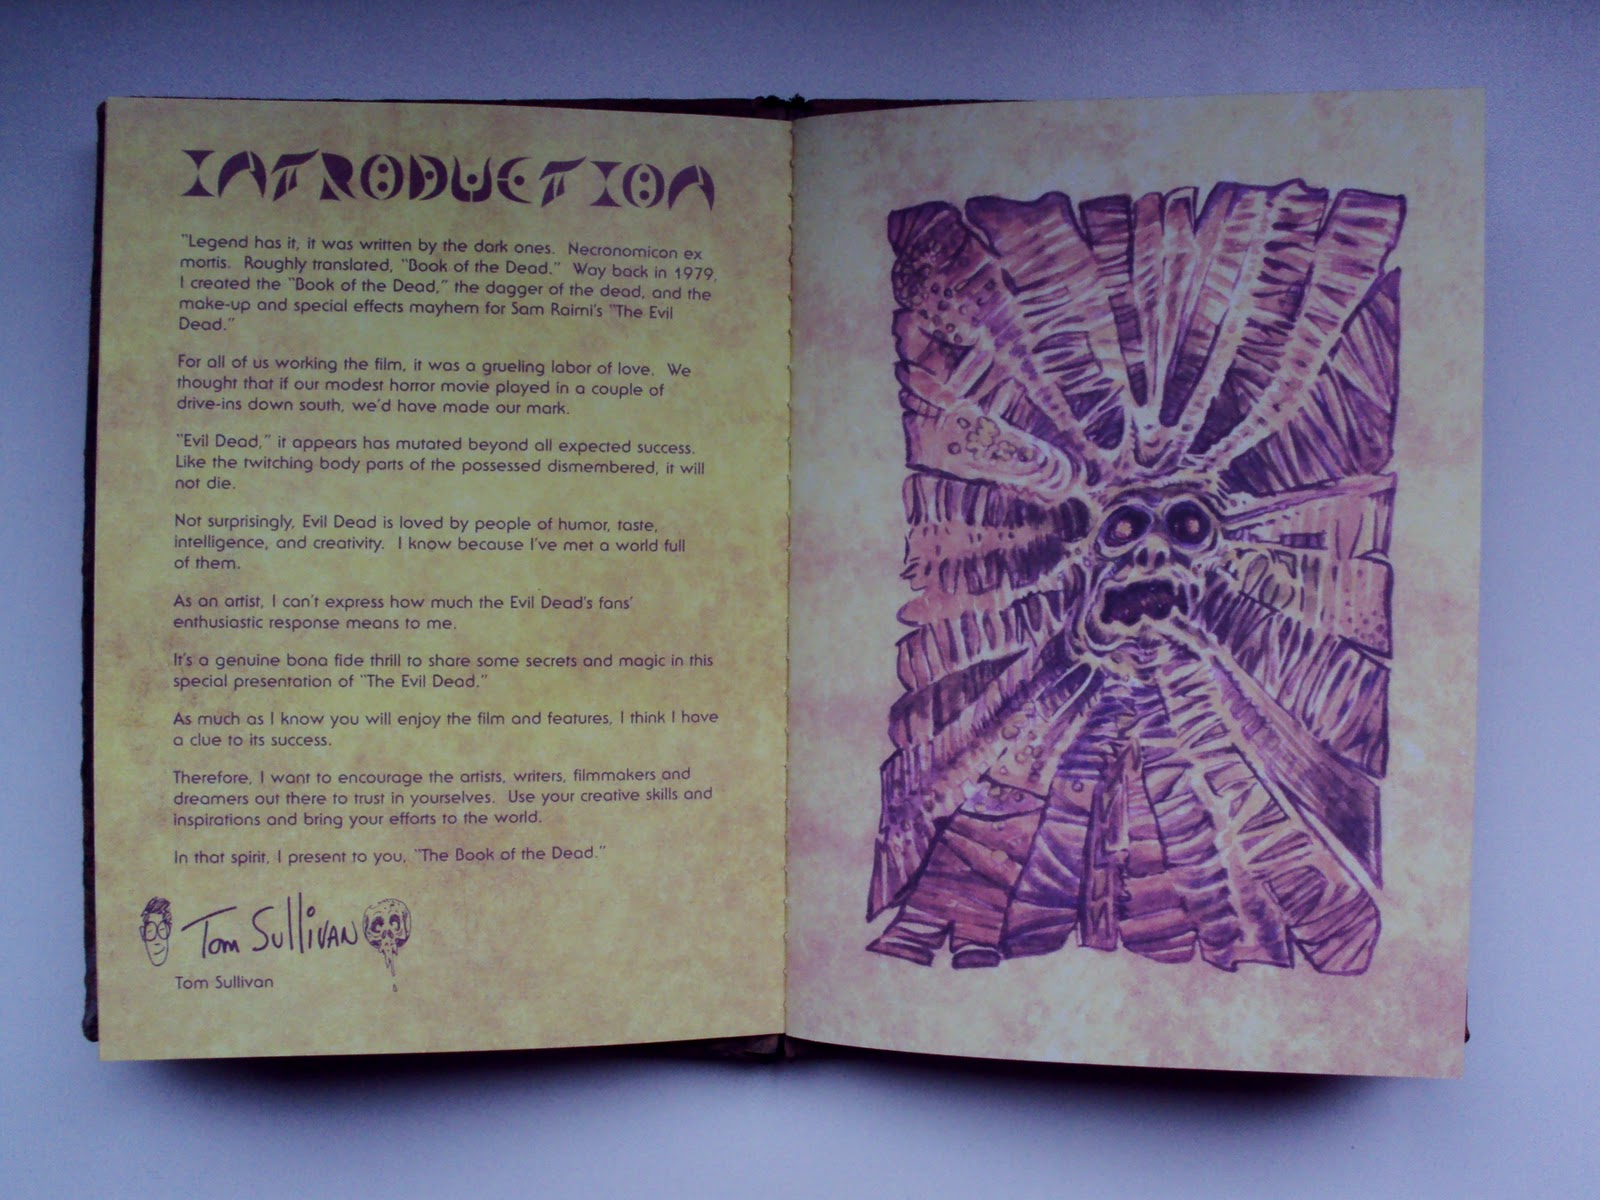 INTRODUCTION
"Legend has it, it was written by the dark ones.  Necronomicon ex
mortis.  Roughly translated, "Book of the Dead."  Way back in 1979,
I created the "Book of the Dead," the dagger of the dead, and the
make-up and special effects mayhem for Sam Raimi's "The Evil
Dead."
For all of us working the film, it was a grueling labor of love.  We
thought that if our modest horror movie played in a couple of
drive-ins down south, we'd have made our mark.
"Evil Dead," it appears has mutated beyond all expected success.
Like the twitching body parts of the possessed dismembered, it will
not die.
Not surprisingly, Evil Dead is loved by people of humor, taste,
intelligence, and creativity.  I know because I've met a world full
of them.
As an artist, I can't express how much the Evil Dead's fans'
enthusiastic response means to me.
It's a genuine bona fide thrill to share some secrets and magic in this
special presentation of "The Evil Dead."
As much as I know you will enjoy the film and features, I think I have
a clue to its success.
Therefore, I want to encourage the artists, writers, filmmakers and
dreamers out there to trust in yourselves.  Use your creative skills and
inspirations and bring your efforts to the world.
In that spirit, I present to you, "The Book of the Dead."
Tom Sullivan
Tom Sullivan